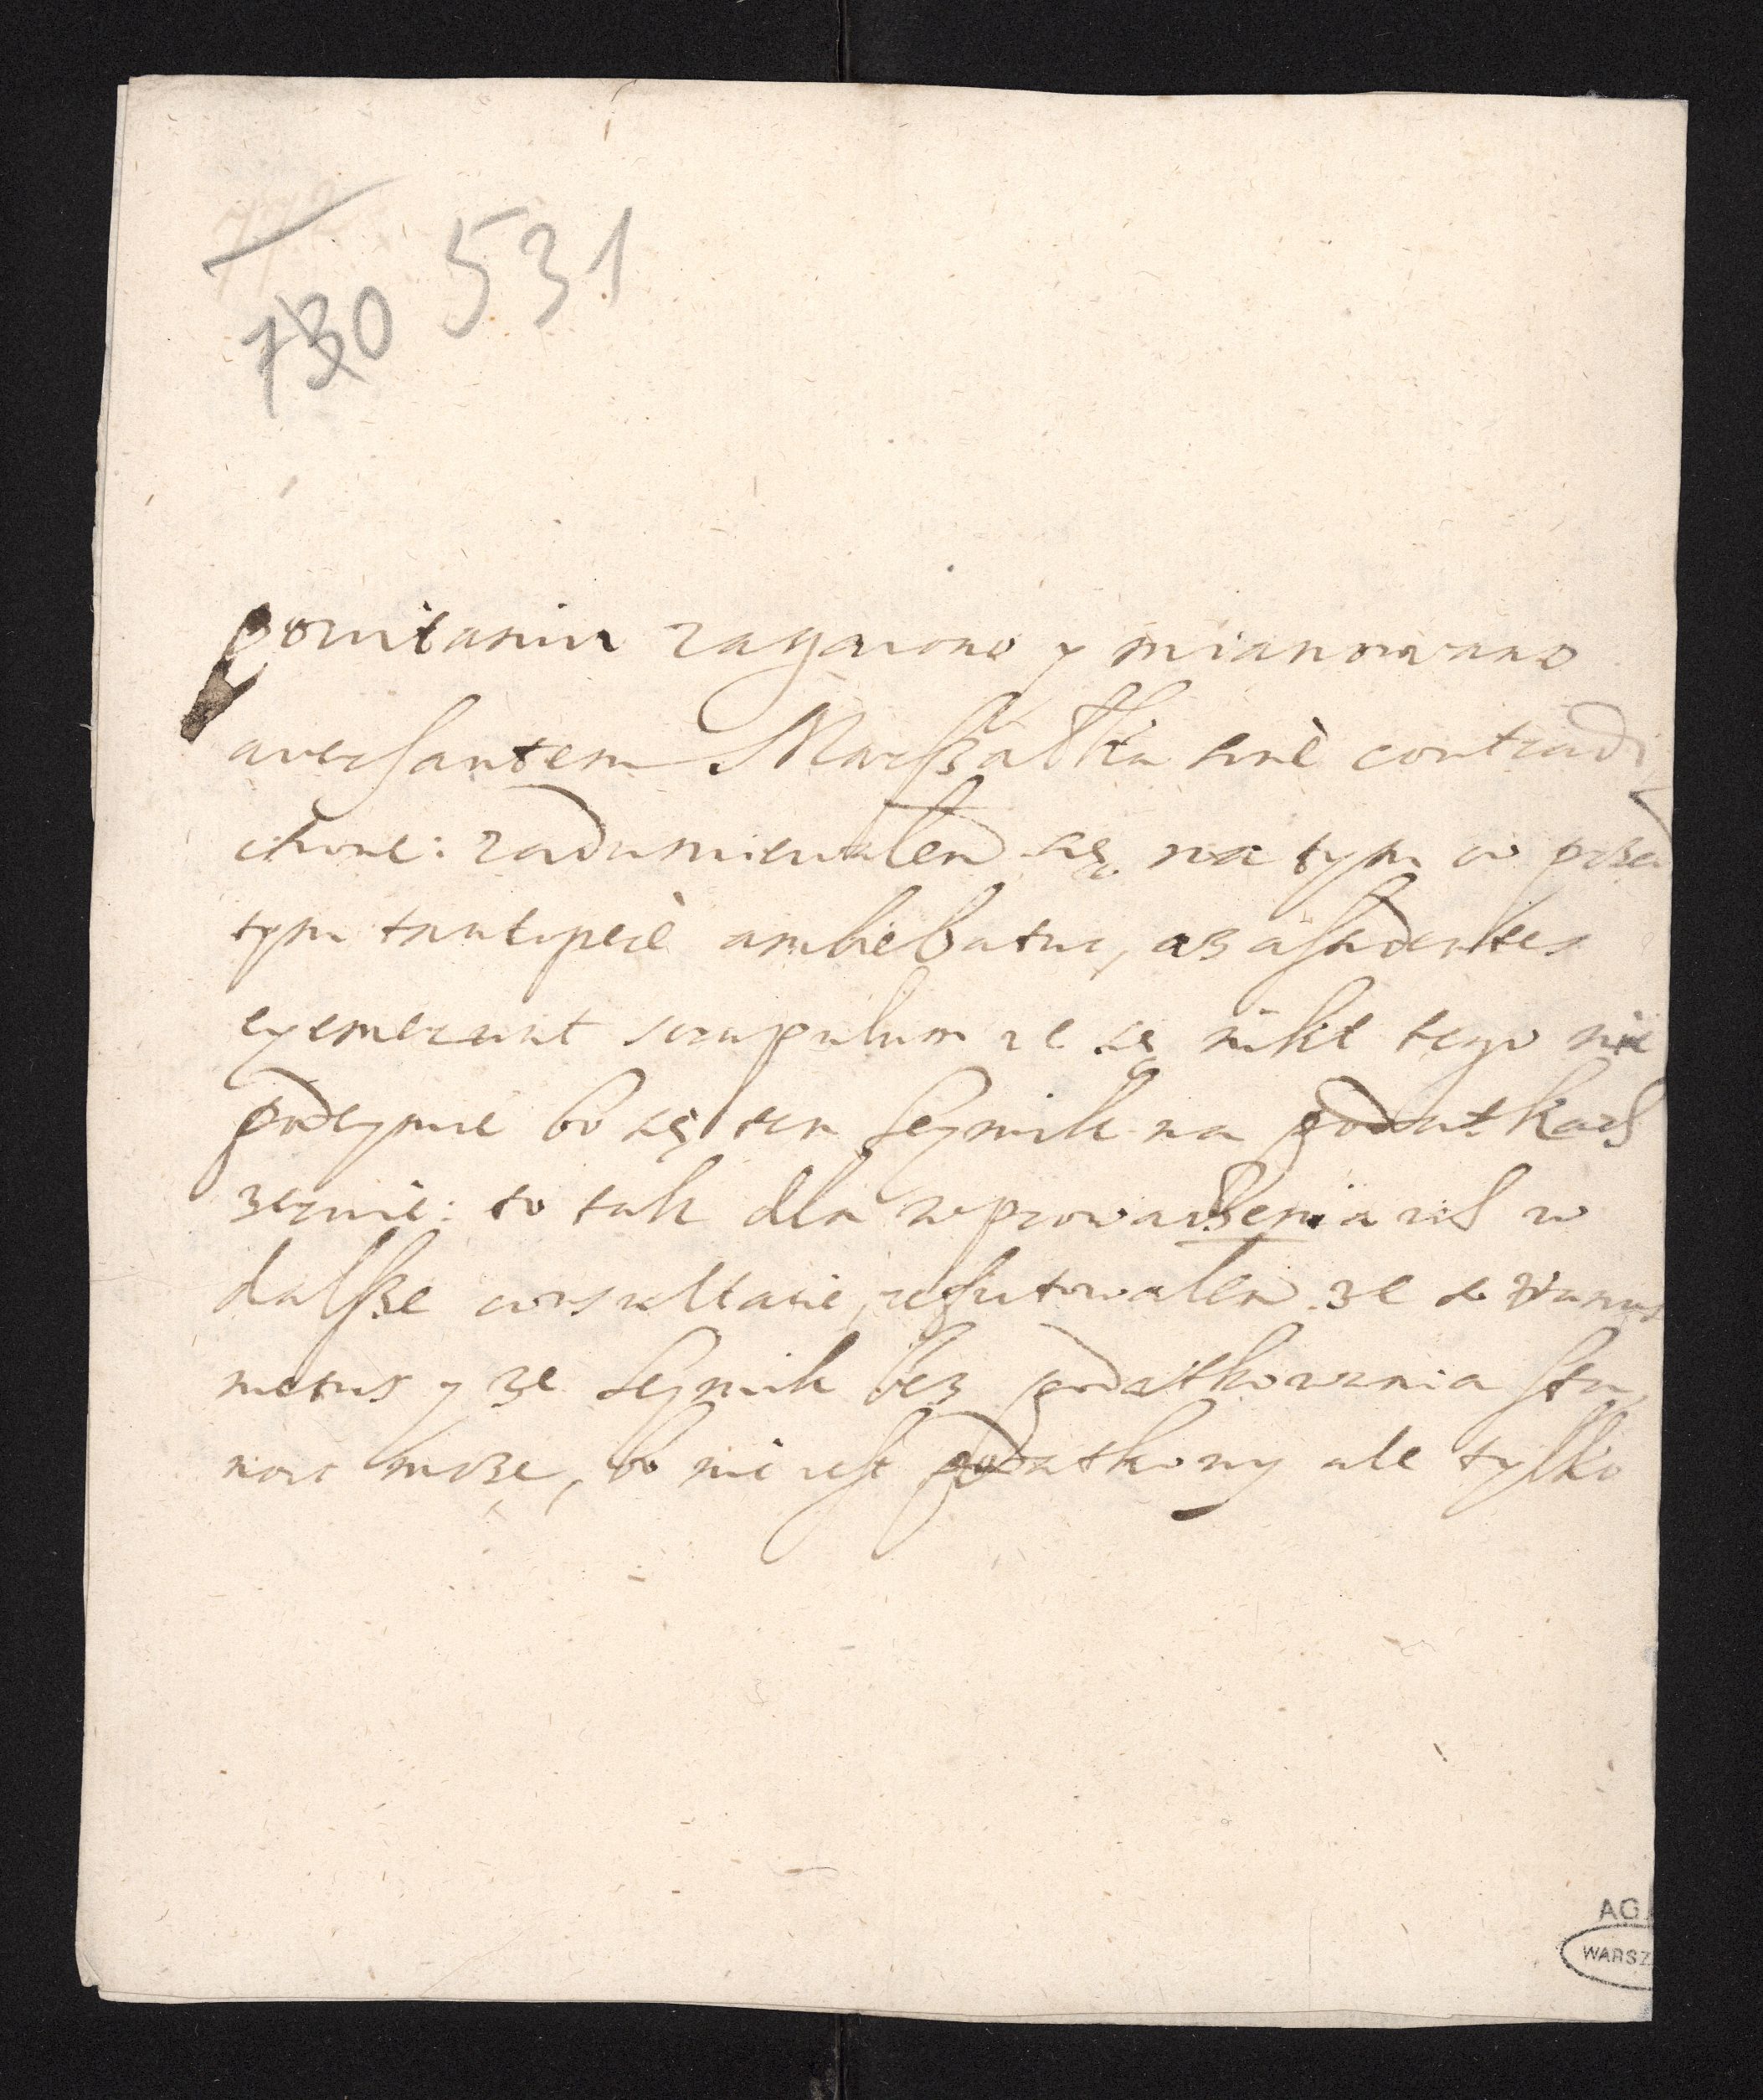 730 531
powitaniu zagaiono y mianowano
aversantem Marszałka sine contradi
ctione: zadumiewałem się na tym co przed
tym tantopere ambiebatur, az assidentes
exemerunt scrupulum ze się nikt tego nie
podeymie bo się ten seymik na podatkach
zerwie: to tak dla wprowadzenia ich w
dalsze consultacie, refutowałem ze to vanus
metus y ze seymik bez podatkowania sta
nąc może, bo nie iest podatkowy ale tylko
AGA
WARSZ